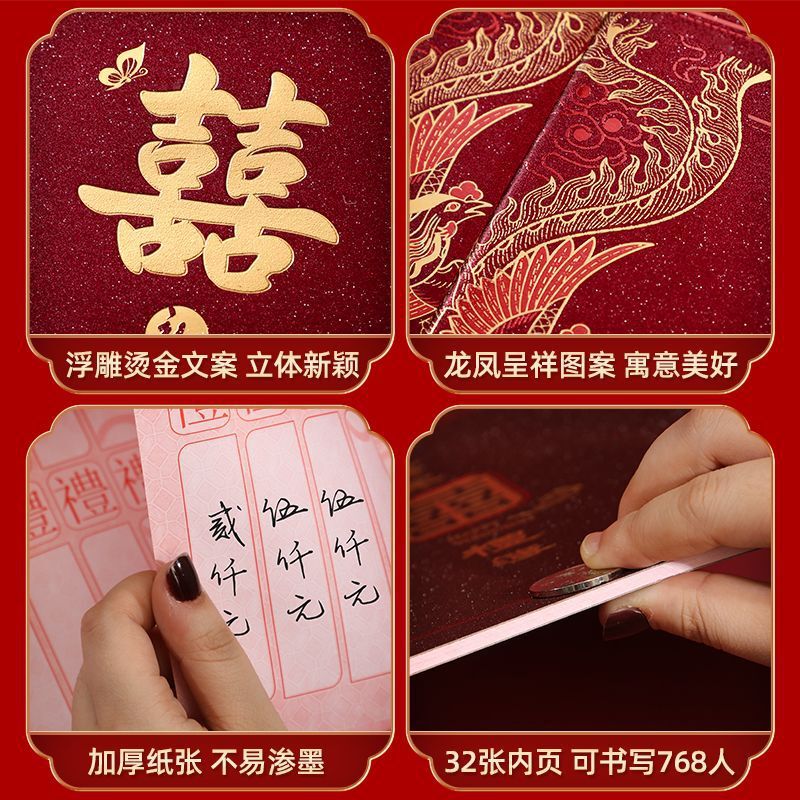 囍
浮雕烫金文案 立体新颖
龙凤呈祥图案 寓意美好
禮
禮
禮
贰仟元
伍仟元
伍仟元
加厚纸张 不易渗墨
32张内页 可书写768人